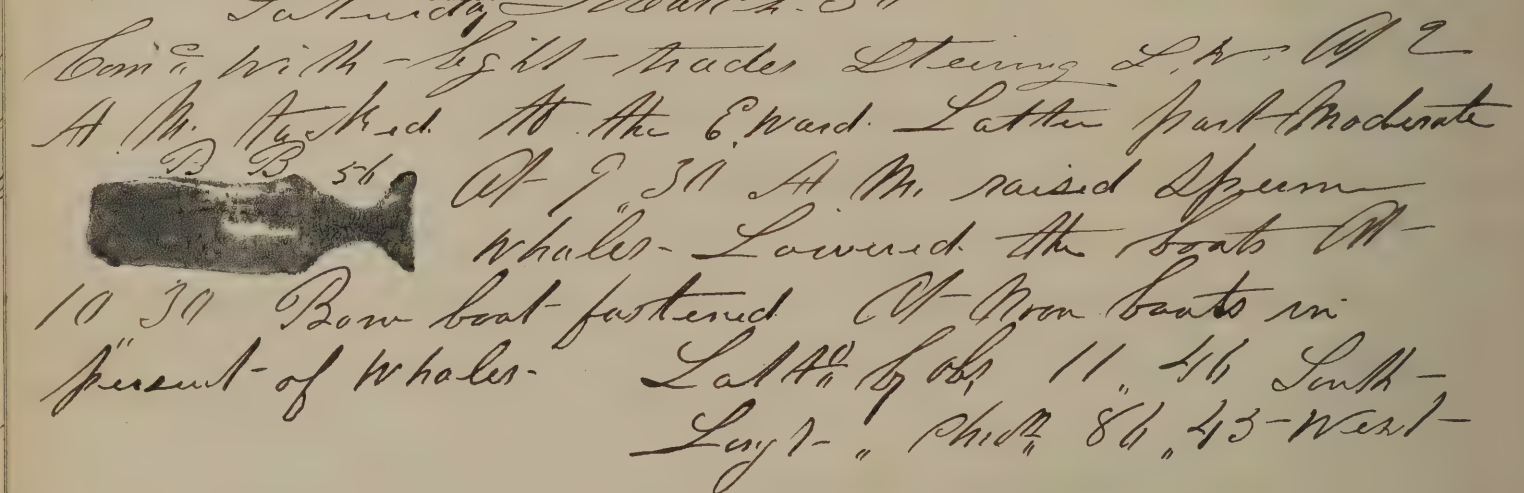 Saturday March. 30
Comc with light trades Steering S.W. At 2
A M. tacked to the E.Ward. Latter part Moderate
B B 56
At 9,,30 A M. raised Sperm
whales- Lowered the boats At
10,,30 Bow boat fastened At Noon boats in
persuit of whales- Latd by obs 11,,46 South
Longt ,, Chrom 86,,43 West